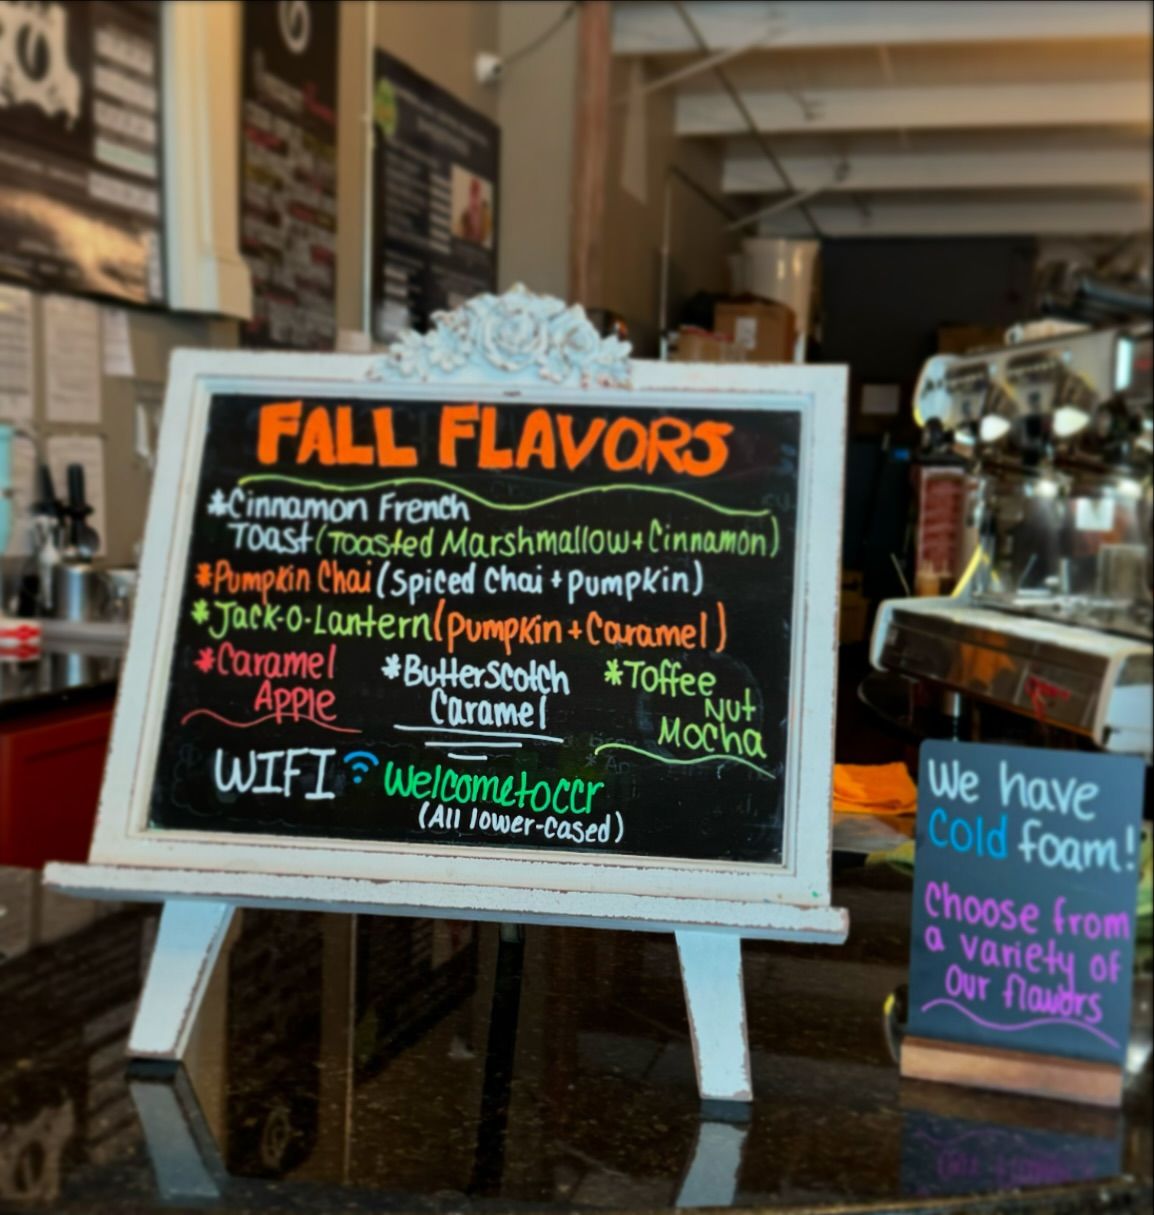 FALL FLAVORS
*Cinnamon French
Toast (Toasted Marshmallow + Cinnamon)
*Pumpkin Chai (Spiced Chai + pumpkin)
*Jack-O-Lantern (Pumpkin + Caramel)
*Caramel
Apple
*ButterScotch
Caramel
*Toffee
Nut
Mocha
WIFI Welcometoccr
(All lower-cased)
We have
Cold foam!
Choose from
a variety of
our flavors